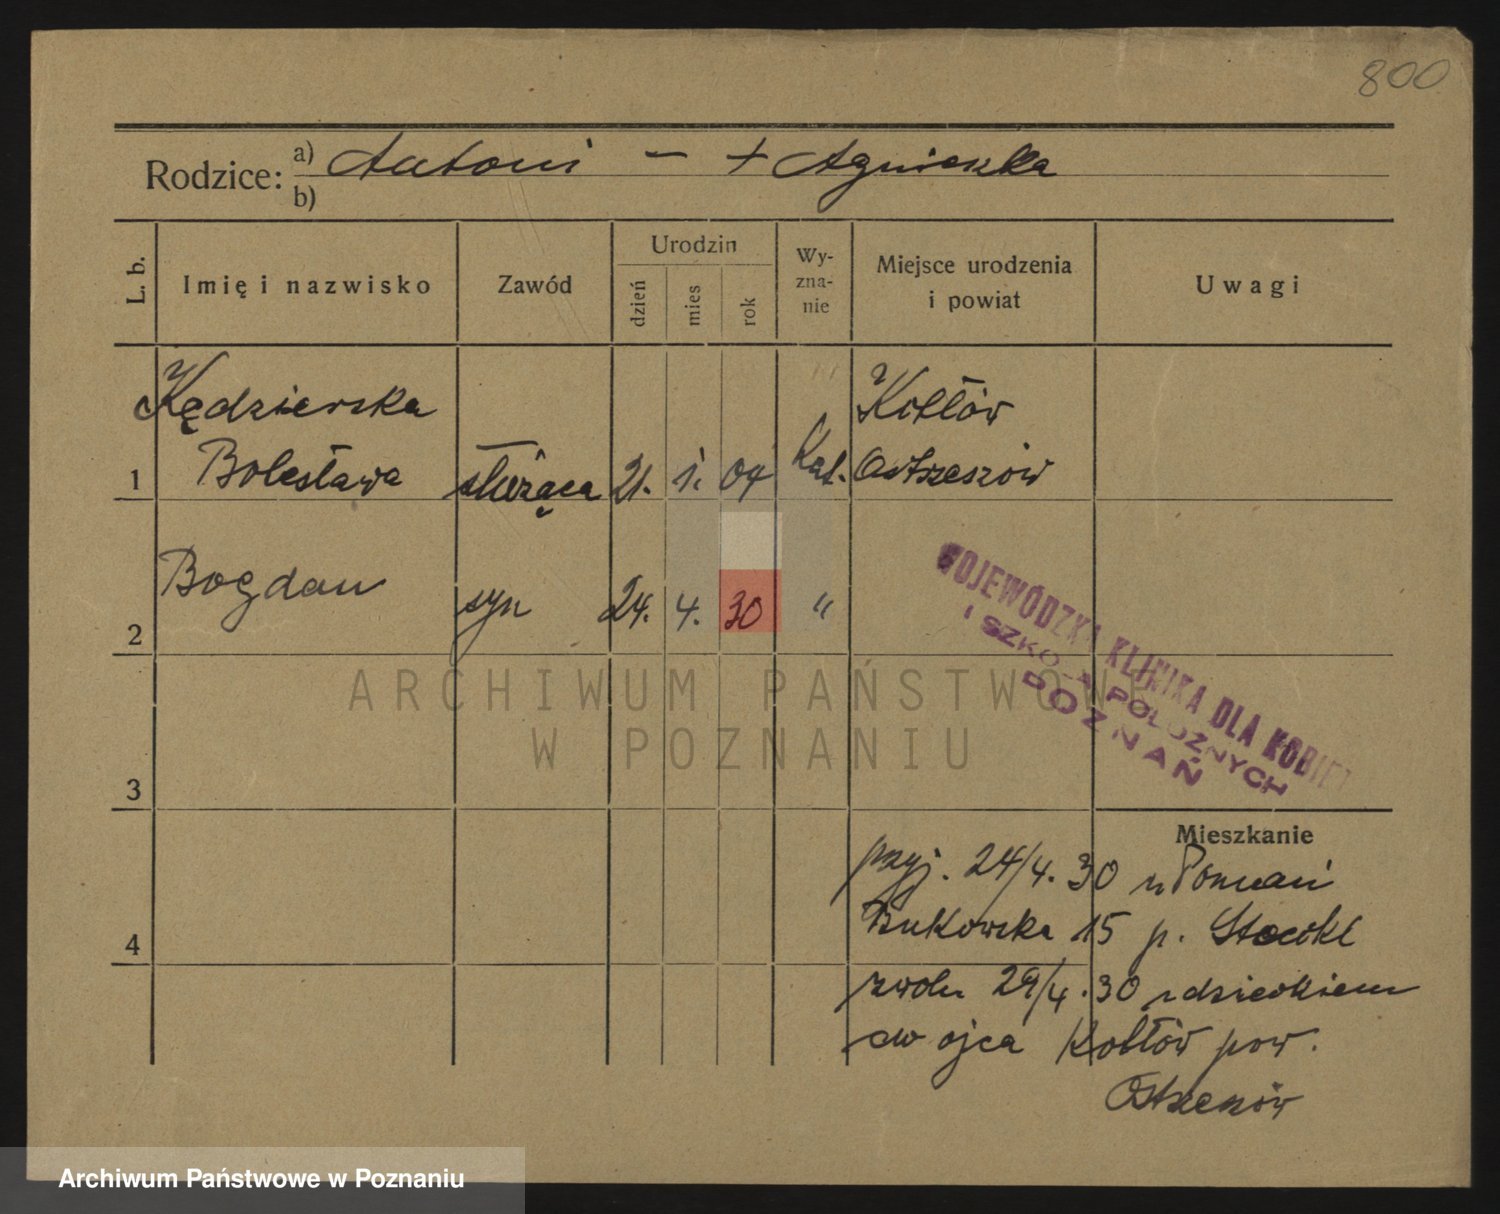 800
Rodzice: a) Antoni – + Agnieszka
b)
L. b. Imię i nazwisko Zawód Urodzin dzień mies rok Wy-zna-nie Miejsce urodzenia i powiat Uwagi
Kędzierska Kotłów
1 Bolesława służąca 21. 1. 04 Kat. Ostrzeszów
2 Bogdan syn 24. 4. 30 "
WOJEWÓDZKA KLINIKA DLA KOBIET
I SZKOŁA POŁOŻNYCH
POZNAŃ
ARCHIWUM PAŃSTWOWE
W POZNANIU
3
Mieszkanie
przyj. 24/4. 30 z Poznań
4 Bukowska 15 p.
zwoln 29/4. 30 z dzieckiem
do ojca Kotłów pow.
Ostrzeszów
Archiwum Państwowe w Poznaniu